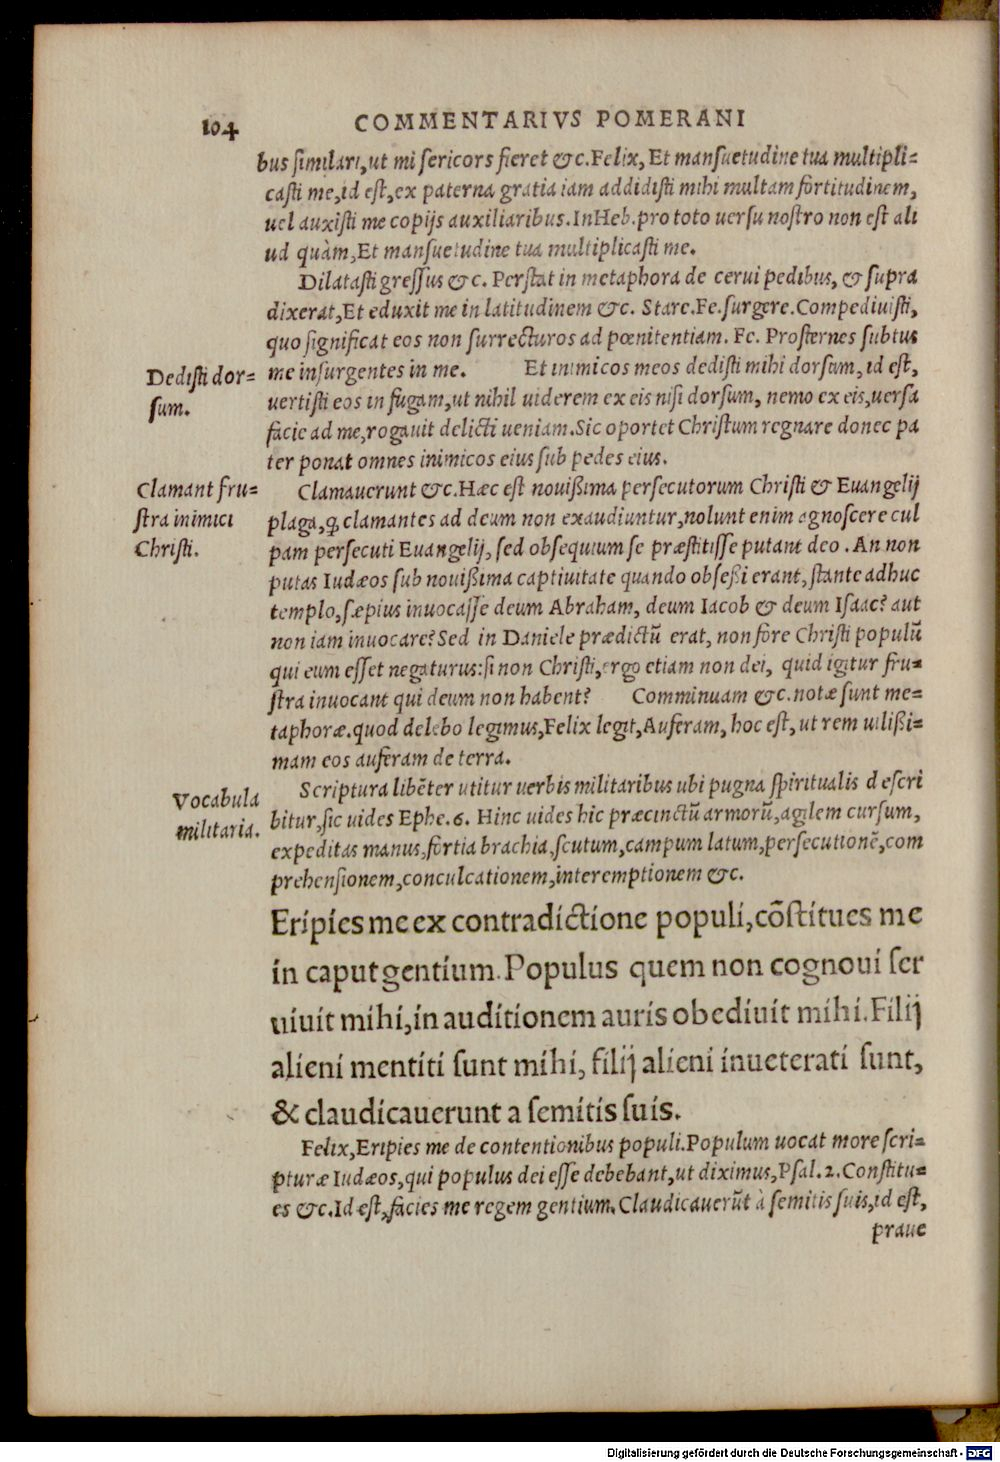 104 COMMENTARIVS POMERANI
bus similari, ut misericors fieret &c. Felix, Et mansuetudine tua multipli=
casti me, id est, ex paterna gratia iam addidisti mihi multam fortitudinem,
uel auxisti me copijs auxiliaribus. In Heb. pro toto uersu nostro non est ali
ud quàm, Et mansuetudine tua multiplicasti me.
Dilatasti gressus &c. Perstat in metaphora de cerui pedibus, & supra
dixerat, Et eduxit me in latitudinem &c. Stare. Fe. surgere. Compediuisti,
quo significat eos non surrecturos ad pœnitentiam. Fe. Prosternes subtus
me insurgentes in me. Et inimicos meos dedisti mihi dorsum, id est,
Dedisti dor=
sum.
uertisti eos in fugam, ut nihil uiderem ex eis nisi dorsum, nemo ex eis, uersa
facie ad me, rogauit delicti ueniam. Sic oportet Christum regnare donec pa
ter ponat omnes inimicos eius sub pedes eius.
Clamant fru=
stra inimici
Christi.
Clamauerunt &c. Hæc est nouißima persecutorum Christi & Euangelij
plaga, ꝙ clamantes ad deum non exaudiuntur, nolunt enim agnoscere cul
pam persecuti Euangelij, sed obsequium se præstitisse putant deo. An non
putas Iudæos sub nouißima captiuitate quando obseßi erant, stante adhuc
templo, sæpius inuocasse deum Abraham, deum Iacob & deum Isaac? aut
non iam inuocare? Sed in Daniele prædictũ erat, non fore Christi populũ
qui eum esset negaturus: si non Christi, ergo etiam non dei, quid igitur fru=
stra inuocant qui deum non habent? Comminuam &c. notæ sunt me=
taphoræ. quod delebo legimus, Felix legit, Auferam, hoc est, ut rem uilißi=
mam eos auferam de terra.
Vocabula
militaria.
Scriptura libẽter utitur uerbis militaribus ubi pugna spiritualis descri
bitur, sic uides Ephe. 6. Hinc uides hic præcinctũ armorũ, agilem cursum,
expeditas manus, fortia brachia, scutum, campum latum, persecutionẽ, com
prehensionem, conculcationem, interemptionem &c.
Eripies me ex contradictione populi, cõstitues me
in caput gentium. Populus quem non cognoui ser
uiuit mihi, in auditionem auris obediuit mihi. Filij
alieni mentiti sunt mihi, filij alieni inueterati sunt,
& claudicauerunt a semitis suis.
Felix, Eripies me de contentionibus populi. Populum uocat more scri=
pturæ Iudæos, qui populus dei esse debebant, ut diximus, Psal. 2. Constitu=
es &c. Id est, facies me regem gentium. Claudicauerũt à semitis suis, id est,
praue
Digitalisierung gefördert durch die Deutsche Forschungsgemeinschaft - DFG